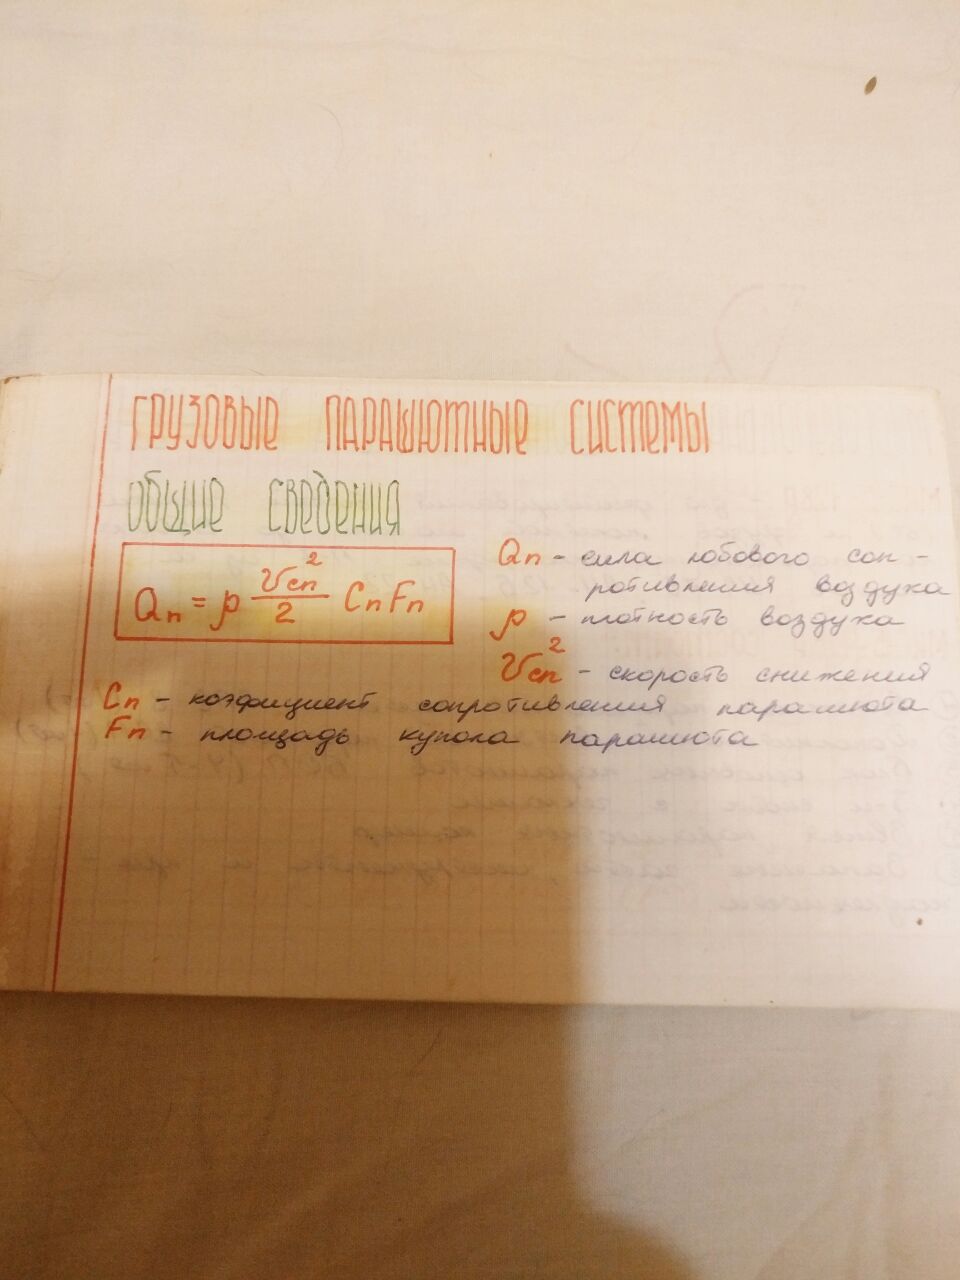 ГРУЗОВЫЕ ПАРАШЮТНЫЕ СИСТЕМЫ
ОБЩИЕ СВЕДЕНИЯ
Qп = ρ Vсп²/2 Cп Fп
Qп - сила лобового соп-
ротивления воздуха
ρ - плотность воздуха
Vсп² - скорость снижения
Cп - коэфициент сопротивления парашюта
Fп - площадь купола парашюта